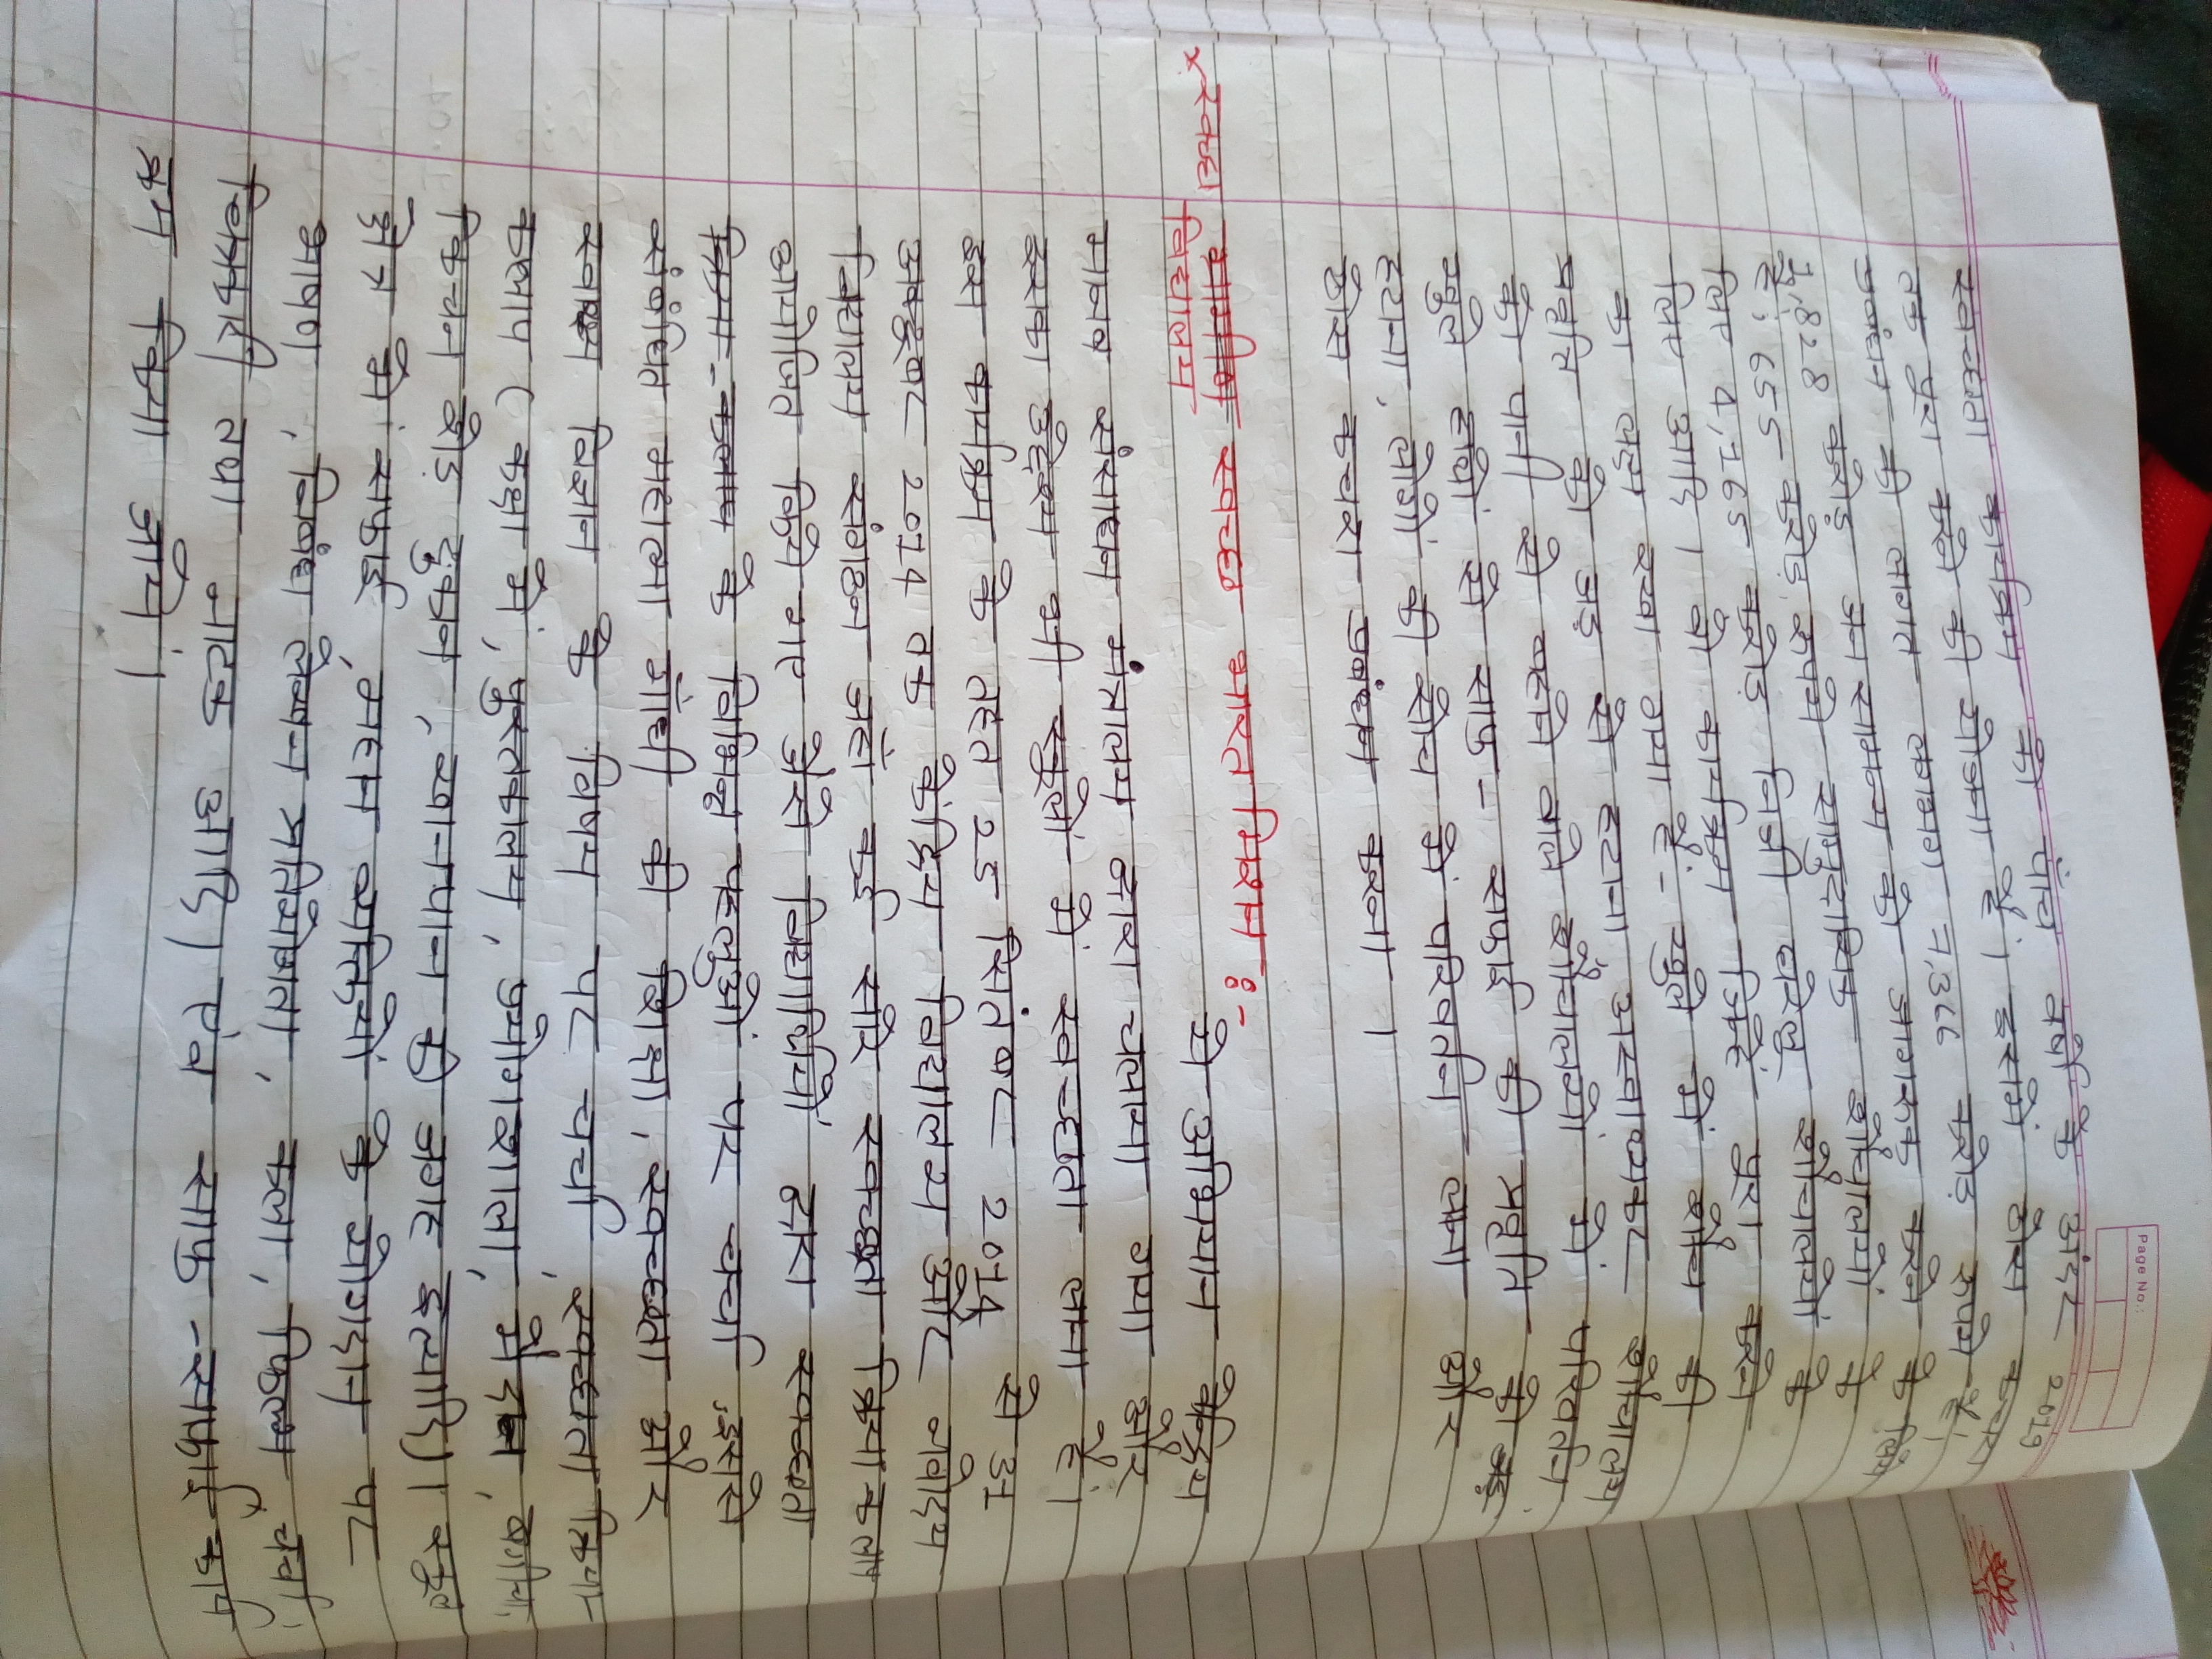 Page No.:
स्वच्छता कार्यक्रम को पांच वर्ष के अंदर 2019
तक पूरा करने की योजना है। इसमें ठोस कचरा
प्रबंधन की लागत लगभग 7,366 करोड़ रुपये है।
1,828 करोड़ जन सामान्य को जागरुक करने के लिए
है; 655 करोड़ रुपये सामुदायिक शौचालयों के
लिए 4,165 करोड़ निजी घरेलू शौचालयों के
लिए आदि। जो कार्यक्रम जिन्हें पूरा करने
का लक्ष्य रखा गया है:- खुले में शौच की
प्रवृति को जड़ से हटाना अस्वास्थकर शौचालय
को पानी से बहाने वाले शौचालयों में परिवर्तन
खुले हाथों से साफ-सफाई की प्रवृति को
हटाना, लोगों की सोच में परिवर्तन लाना और
ठोस कचरा प्रबंधन करना।
× स्वच्छ भारत स्वच्छ भारत मिशन :-
विद्यालय
ये अभियान केन्द्रिय
मानव संसाधन मंत्रालय द्वारा चलाया गया और
इसका उद्देश्य भी स्कूलों में स्वच्छता लाना है।
इस कार्यक्रम के तहत 25 सितंबर 2014 से 31
अक्टूबर 2014 तक केंद्रिय विद्यालय और नवोदय
विद्यालय संगठन जहाँ कई सारे स्वच्छता क्रियाकलाप
आयोजित किये गए जैसे विद्यार्थियों द्वारा स्वच्छता
क्रिया-कलाप के विभिन्न पहलुओं पर चर्चा, इससे
संबंधित महात्मा गाँधी की शिक्षा, स्वच्छता और
स्वास्थ्य विज्ञान के विषय पर चर्चा, स्वच्छता क्रिया-
कलाप (कक्षा में, पुस्तकालय, प्रयोगशाला, मैदान, बगीचा,
किचन शेड दुकान, खानपान की जगह इत्यादि)। स्कूल
क्षेत्र में सफाई, महान व्यक्तियों के योगदान पर
भाषण, निबंध लेखन प्रतियोगिता, कला, फिल्म, चर्चा,
चित्रकारी तथा नाटक आदि। एंव साफ-सफाई कार्य
क्रम किया जाये।